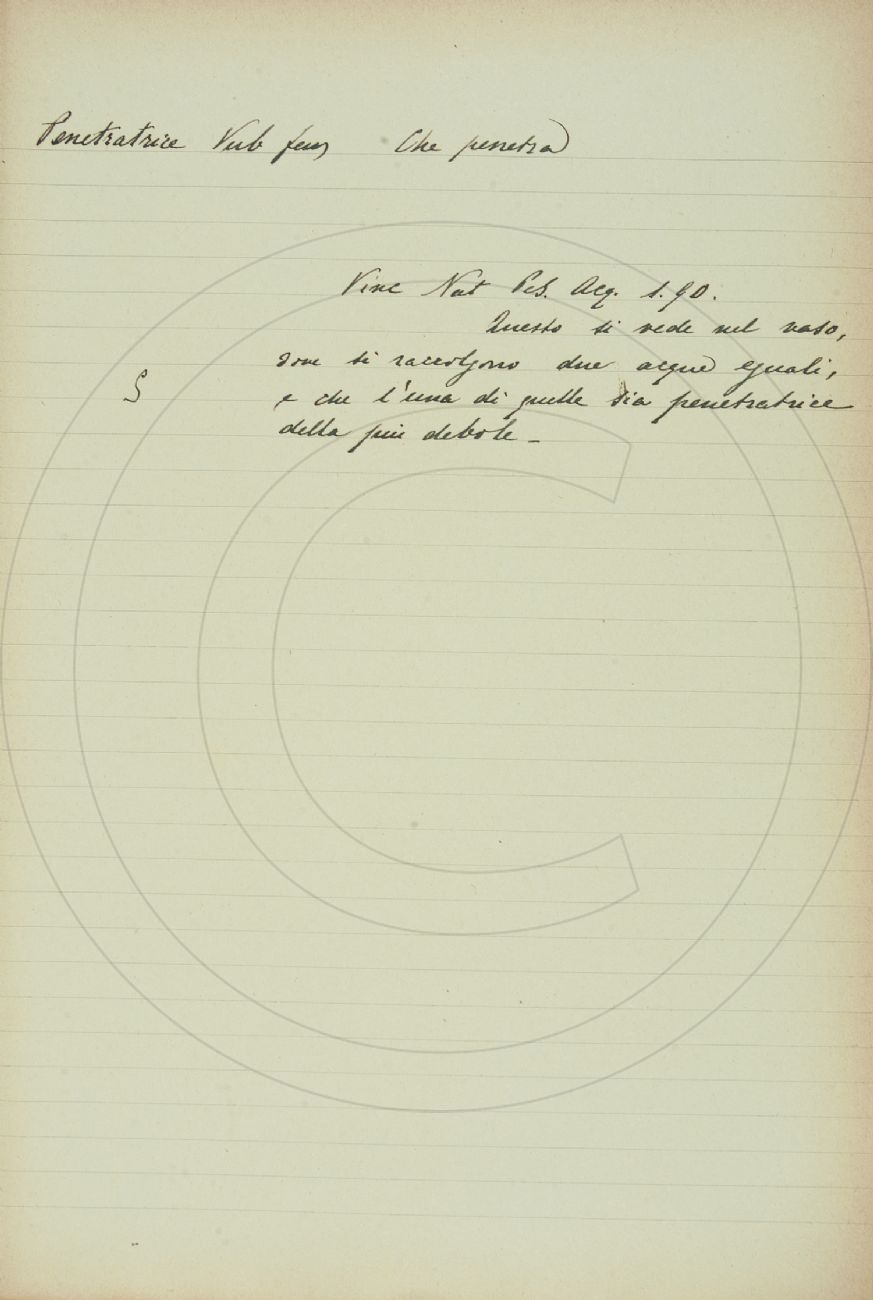 Penetratrice Verb fem Che penetra
Vinc Nat Pes. Acq. 1. 90.
Questo si vede nel vaso,
dove si raccolgono due acque eguali,
S
e che l'una di quelle sia penetratrice
della più debole _